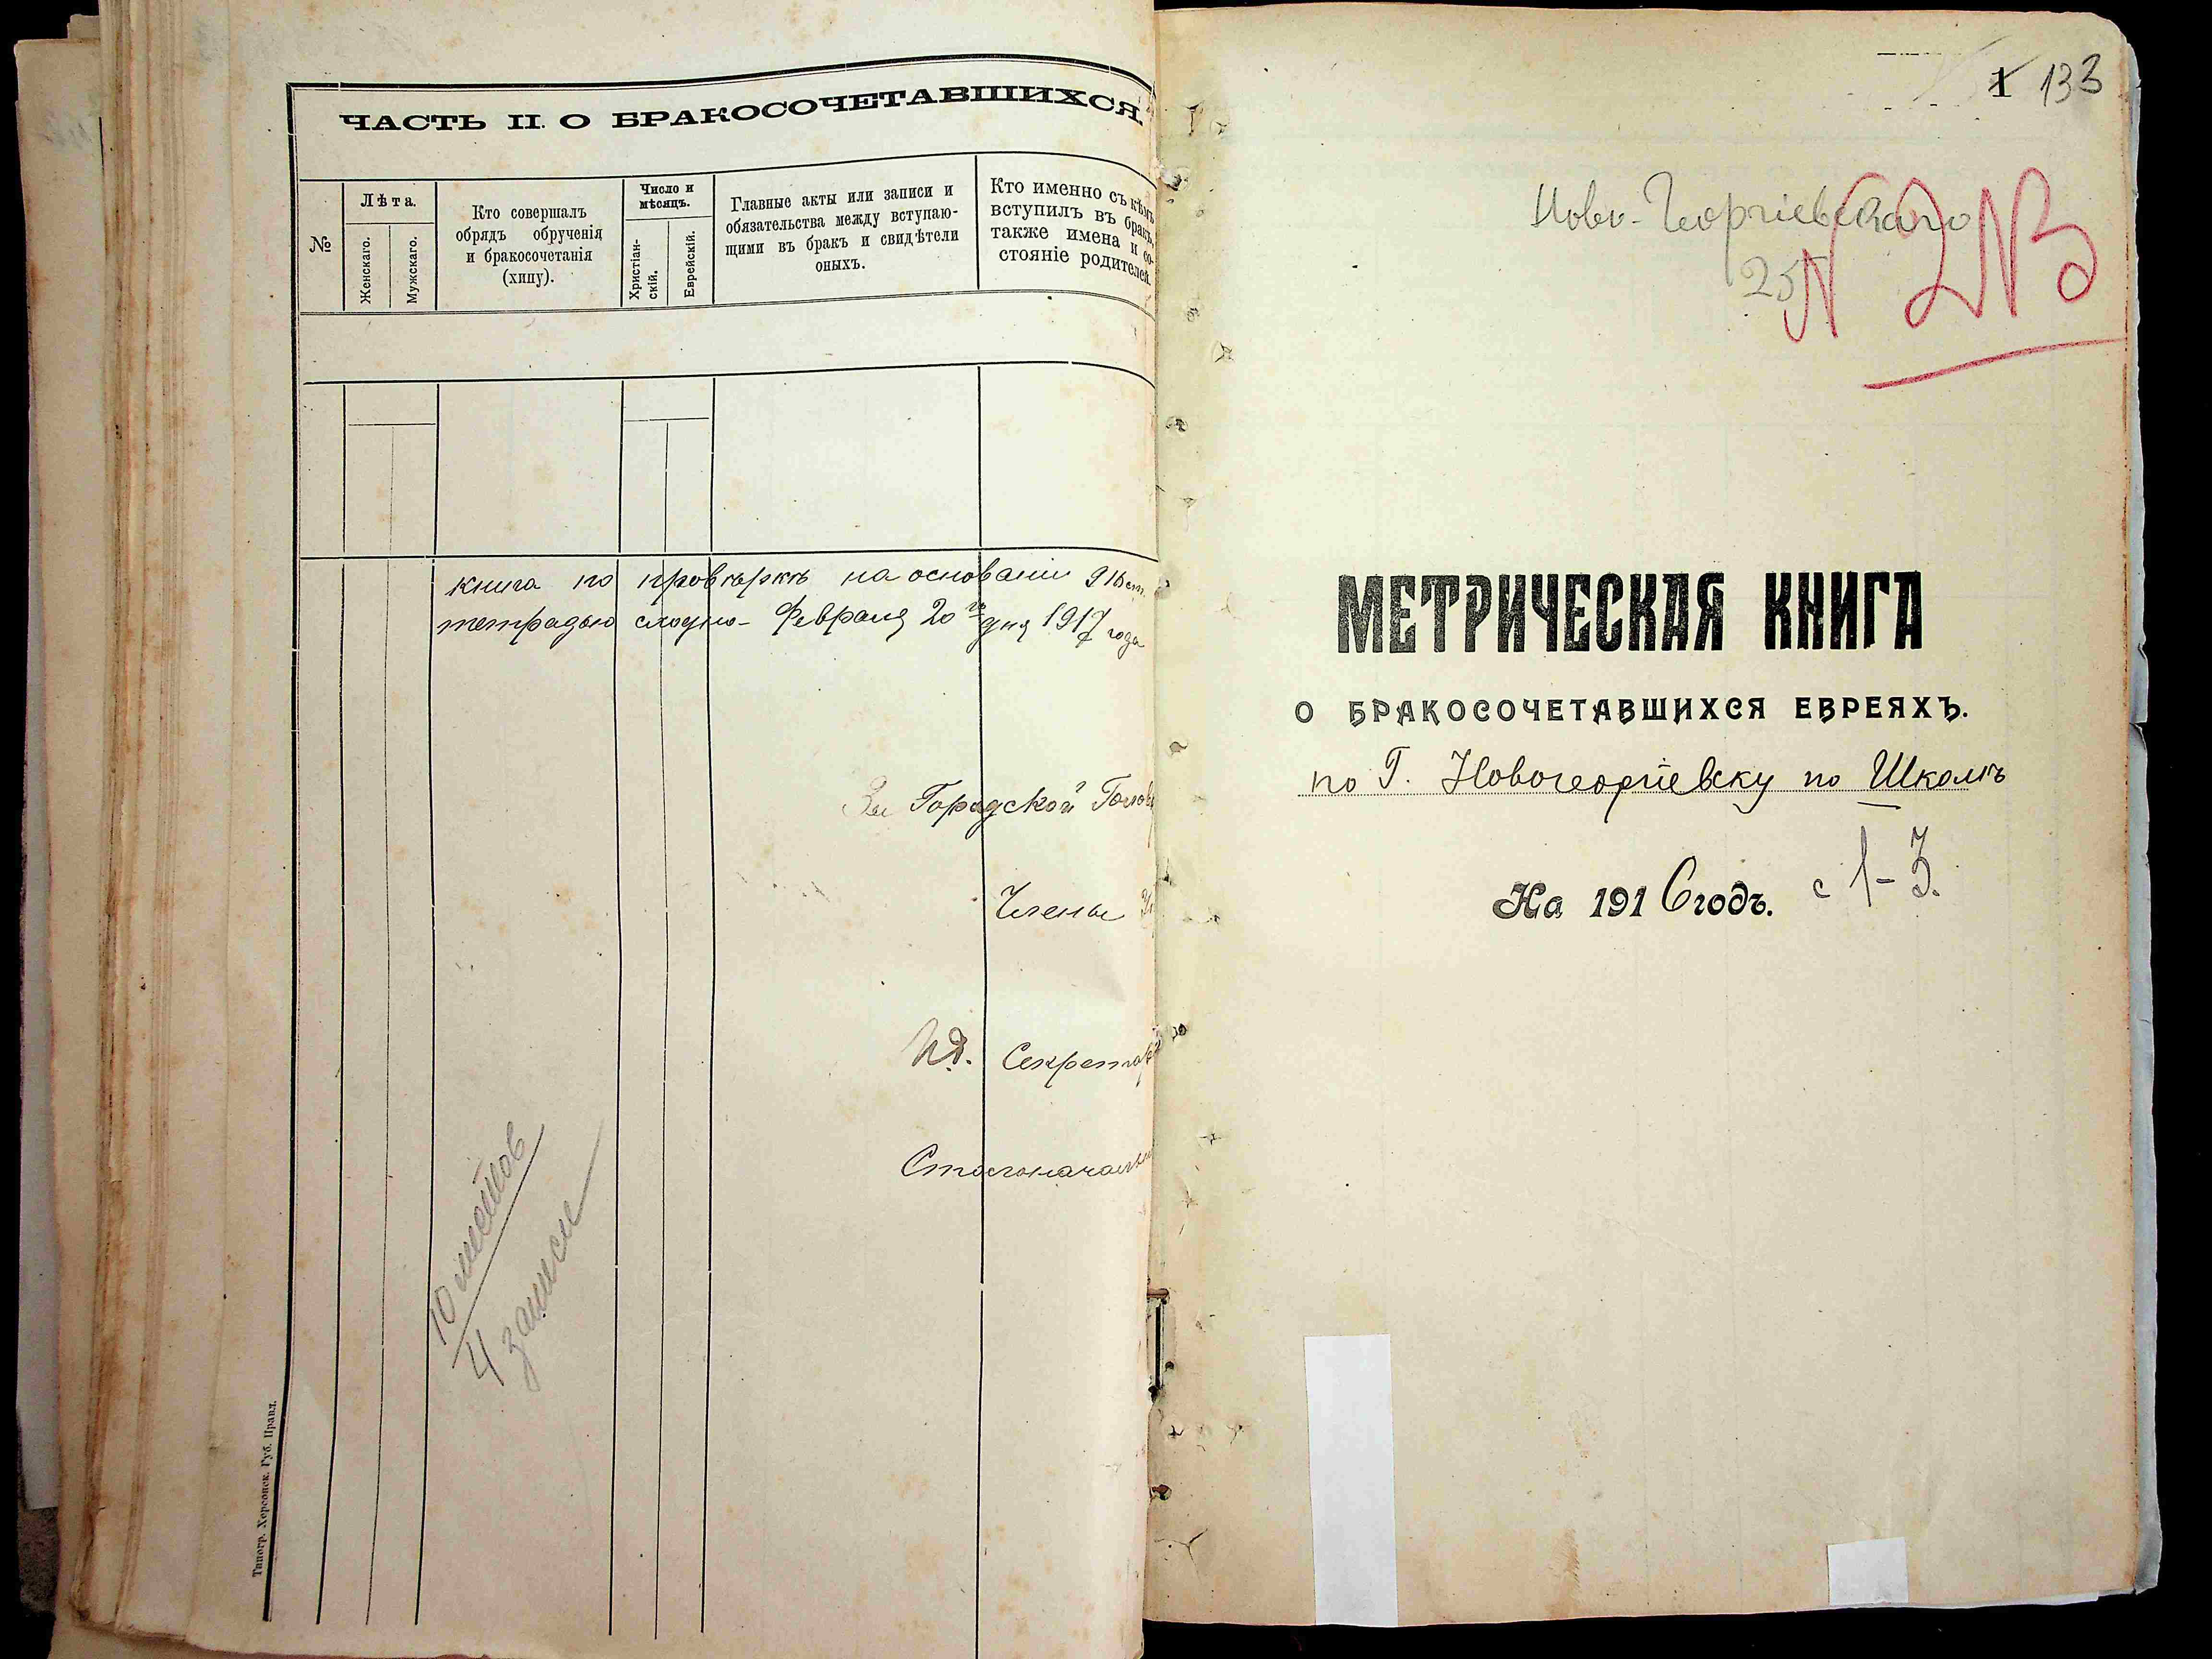 ЧАСТЬ II. О БРАКОСОЧЕТАВШИХСЯ.
№
Лѣта.
Женскаго.
Мужскаго.
Кто совершалъ
обрядъ обрученія
и бракосочетанія
(хипу).
Число и
мѣсяцъ.
Христіан-
скій.
Еврейскій.
Главные акты или записи и
обязательства между вступаю-
щими въ бракъ и свидѣтели
оныхъ.
Кто именно съ кѣмъ
вступилъ въ бракъ,
также имена и со-
стояніе родителей.
книга по провѣркѣ на основаніи 916 ст.
тетрадью сходно - Февраля 20 го дня 1917 года
За Городской Голова
Члены
И.д. Секретар
Столоначальни
10 листов
4 записи
Типогр. Херсонск. Губ. Правл.
1 133
Ново-Георгіевскаго
25
N 213
МЕТРИЧЕСКАЯ КНИГА
О БРАКОСОЧЕТАВШИХСЯ ЕВРЕЯХЪ.
по Г. Новогеоргіевску по Школѣ
На 1916 годъ. с 1-3.